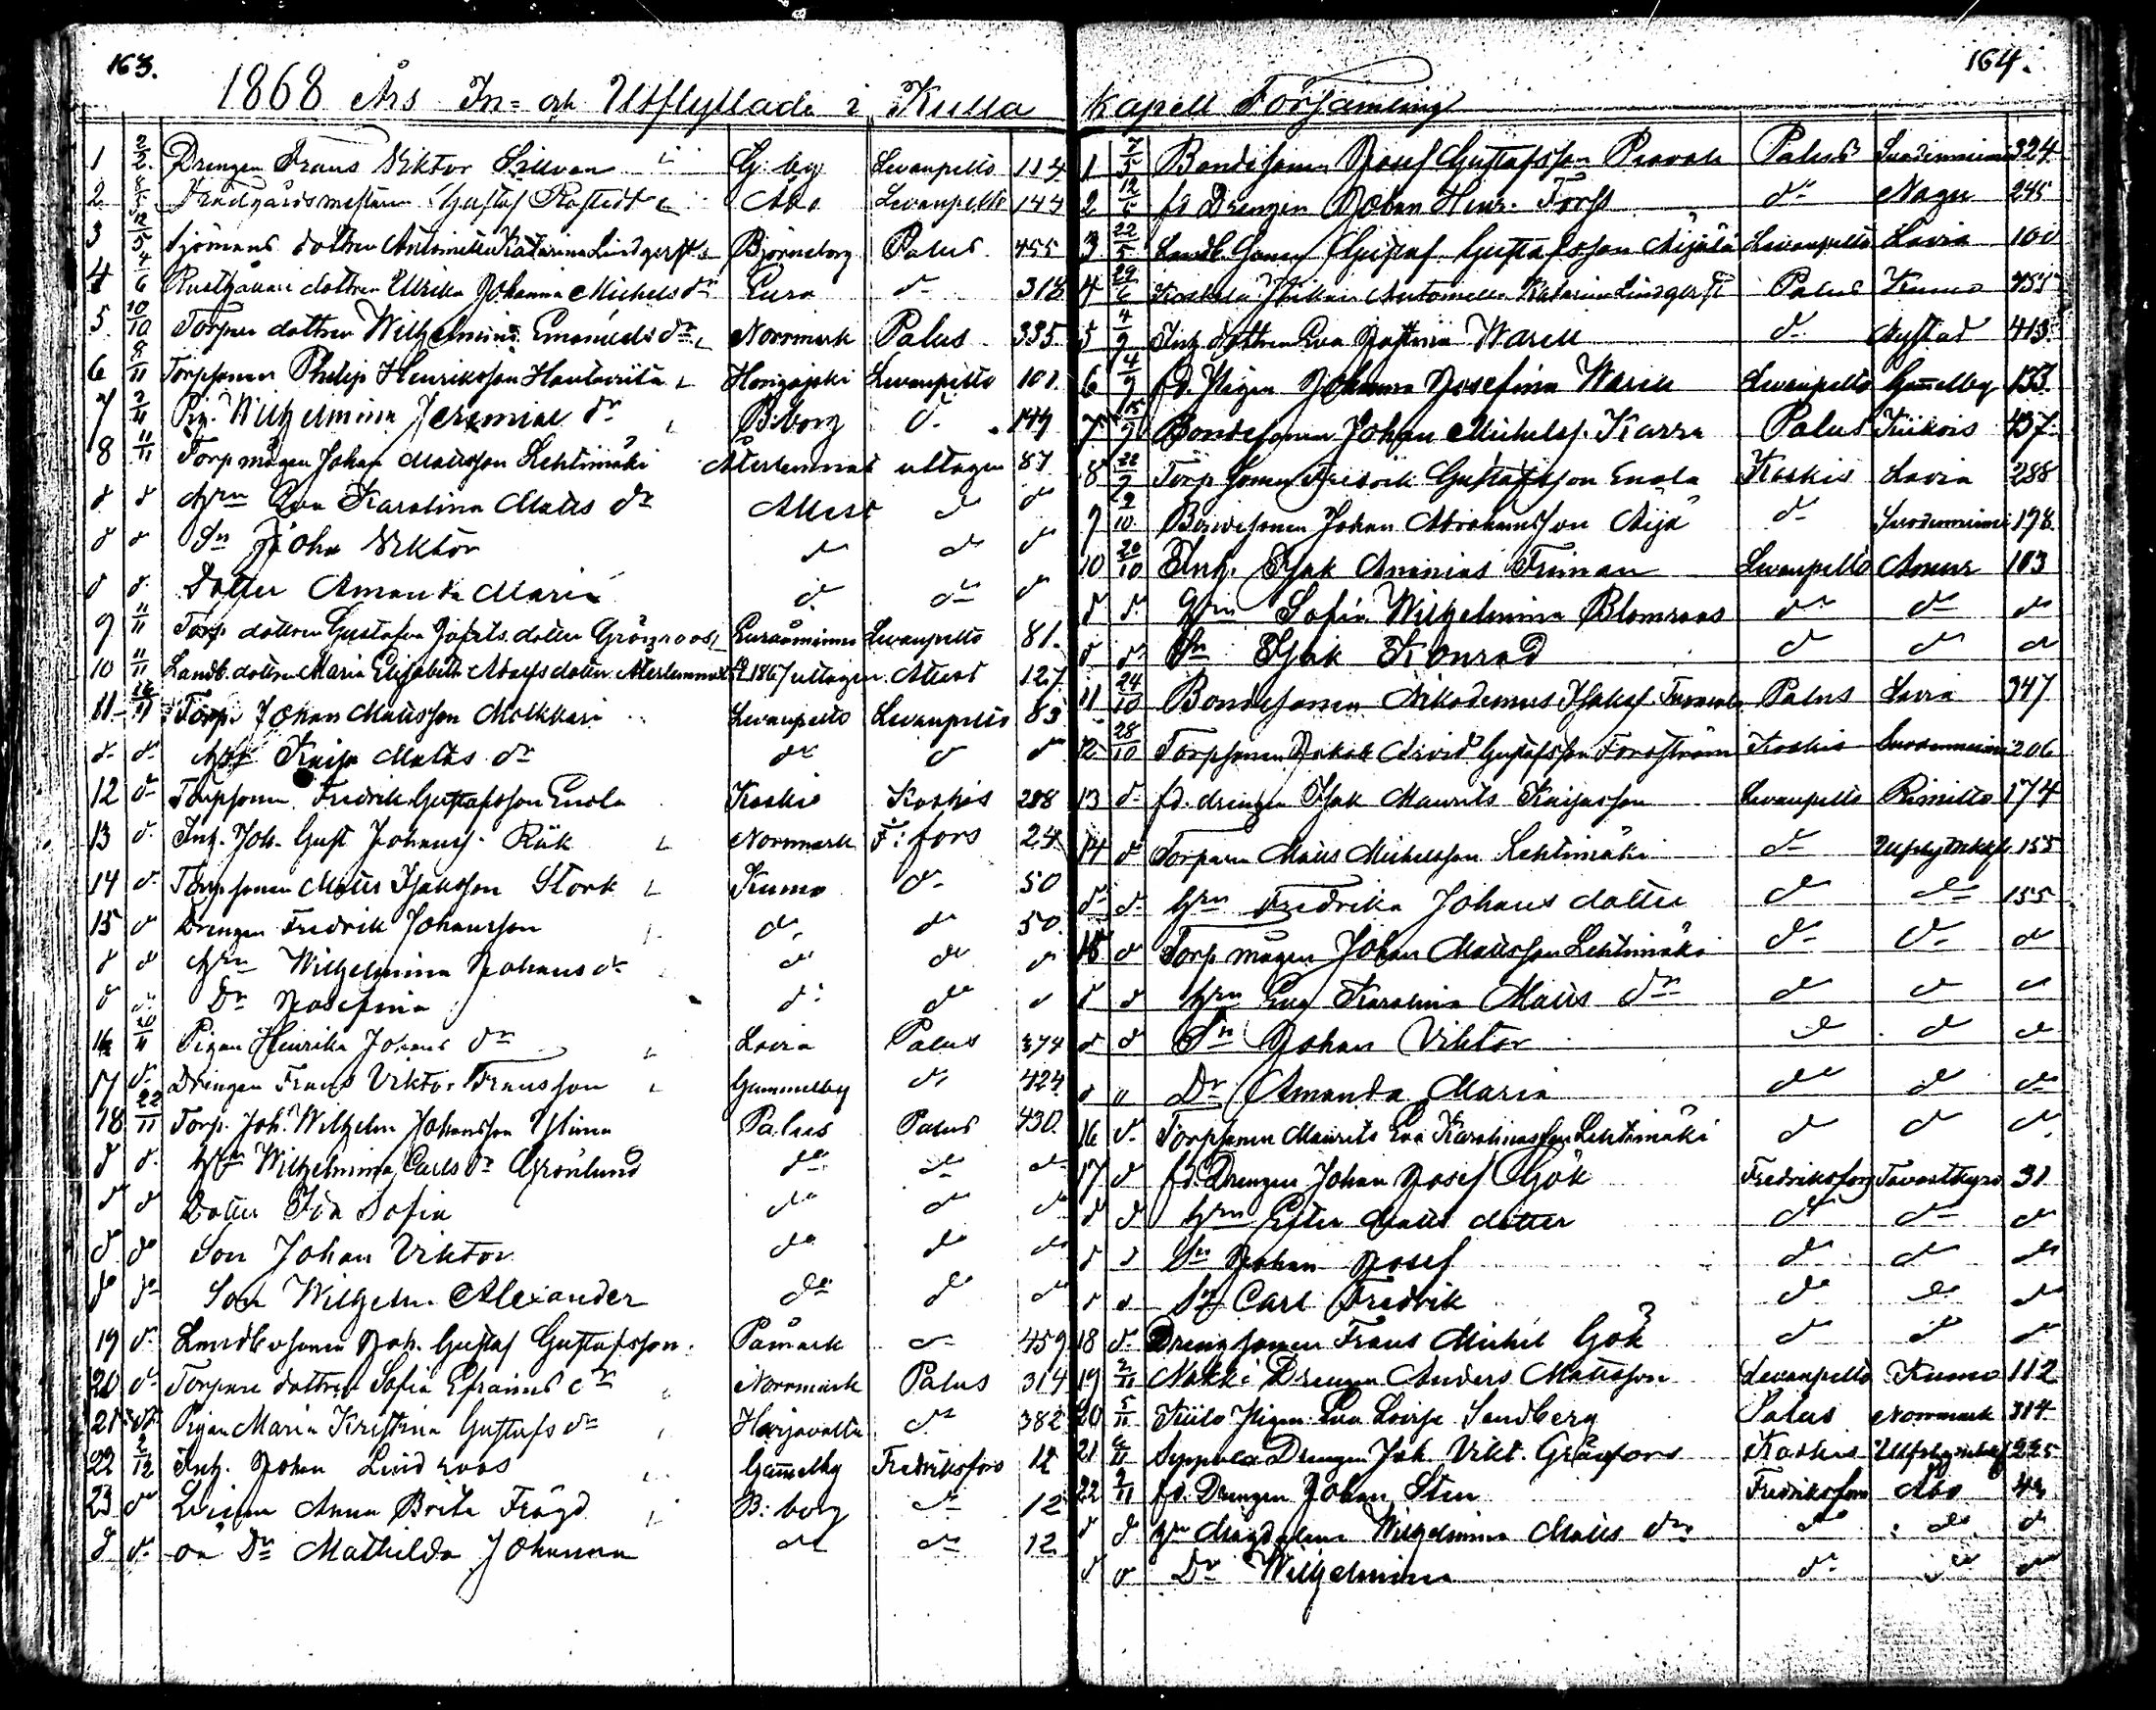 163.
1868 Års In= och Utflyttade i Kulla
1 2/2 Drengen Frans Viktor Sillvan G: by Levanpelto 114
2 8/5 Trädgårdsmästaren Gustaf Åbo Levanpelto 144
3 12/5 Sjömans dottren Katarina Lindqvist Björneborg Palus 455
4 4/6 Rusthållare dottren Ulrika Johanna Michels dr Eura d 318
5 10/10 Torpare dottren Wilhelmina Emanuels dr Norrmark Palus 335
6 8/11 Torpsonen Philip Henriksson Hautaviita Levanpelto 101
7 2/11 Pig. Wilhelmina Jeremiae dr B:borg d 149
8 11/11 Torp mågen Johan Mattsson Lehtimäki Återlemnat uttagen 87
d d Hrn Eva Karolina Matts dr Attest d d
d d Sn Johan Viktor d d d
d d Dotter Amanda Maria d d d
9 11/11 Torp. dottren Gustafva dotter Grönroos Euraåminne Levanpelto 81.
10 11/11 Landb. dottren Maria Elisabeth Adolfs dotter Återlemnat 1867 uttagen Attest 127
11 16/11 Torp. Johan Mattsson Molkkari Levanpelto Levanpelto 83
d d Kaisa Matts dr d d d
12 d Torpsonen Fredrik Gustafsson Enola Koskis Koskis 288
13 d Inh. Joh. Gust Johanss. Rük Norrmark F: fors 24
14 d Torpsonen Matts Isaksson Stork Kumo d 50
15 d Drengen Fredrik Johansson d d 50
d d Hrn Wilhelmina Johans dr d d d
d d Dr Josefina d d d
16 20/11 Pigan Henrika Johans dr Lavia Palus 374
17 d Drengen Frans Viktor Fransson Gammelby d 424
18 22/11 Torp. Joh. Wilhelm Johansson Palus Palus 430
d d Hrn Wilhelmina Carls dr Grönlund d d d
d d Dotter Ida Sofia d d d
d d Son Johan Viktor d d d
d d Son Wilhelm Alexander d d d
19 d Landbosonen Joh. Gustaf Gustafsson Påmark d 459
20 d Torpare dottren Sofia Efraims dr Norrmark Palus 314
21 d Pigan Maria Kristina Gustafs dr Harjavalta d 382
22 2/12 Inh. Johan Lindroos Gammelby Fredriksfors 12
23 d Anna Brita Frögd B: borg d 12
d d oä Dr Mathilda Johanna d d 12
164.
Kapell Församling
1 7/5 Bondesonen Josef Gustafsson Palus Suodenniemi 324
2 12/5 fd Drengen Johan Henr. Forss d Nagu 245
3 22/5 Landb. sonen Gustaf Gustafsson Äijälä Levanpelto Lavia 100
4 29/6 Katarina Lindqvist Palus Kumo 455
5 4/9 Inh dottren Eva Warell d Nystad 413
6 14/9 fd. Pigan Johanna Josefina Warell Levanpelto Gammelby 133
7 15/9 Bondesonen Johan Michelss. Karra Palus Kiikois 437
8 22/9 Torp sonen Fredrik Gustafsson Enola Koskis Lavia 288
9 9/10 Bondesonen Johan Abrahamsson Äijä d Suodenniemi 198
10 20/10 Inh. Isak Ananias Friman Levanpelto 103
d d Hrn Sofia Wilhelmina Blomroos d d d
d d Sn Isak Konrad d d d
11 24/10 Bondesonen Nikodemus Palus Lavia 347
12 28/10 Torpsonen Jakob Arvid Gustafsson Forsström Koskis Suodenniemi 206
13 d fd. drengen Isak Maurits Kaisasson Levanpelto Rimitto 174
14 d Torparen Matts Michelsson Lehtimäki d 155
d d Hrn Fredrika Johans dotter d d 155
15 d Torp mågen Johan Mattsson Lehtimäki d d d
d d Hrn Eva Karolina Matts dr d d d
d d Sn Johan Viktor d d d
d d Dr Amanda Maria d d d
16 d Torpsonen Maurits Eva Karolinasson Lehtimäki d d d
17 d fd. Drengen Johan Josef Gök Fredriksfors Tavastkyro 31
d d Hrn Ester Matts dotter d d d
d d Sn Johan Josef d d d
d d Sn Carl Fredrik d d d
18 d Drengsonen Frans Michel Gök d d d
19 2/11 Nokki Drengen Anders Mattsson Levanpelto Kumo 112
20 5/11 Pigan Eva Lovisa Sandberg Palus Norrmark 314
21 6/11 Seppälä Drengen Joh. Vikt. Grönfors Koskis 225
22 9/11 fd. Drengen Johan Sten Fredriksfors Åbo 43
d d Hrn Magdalena Wilhelmina Matts dr d d d
d d Dr Wilhelmina d d d